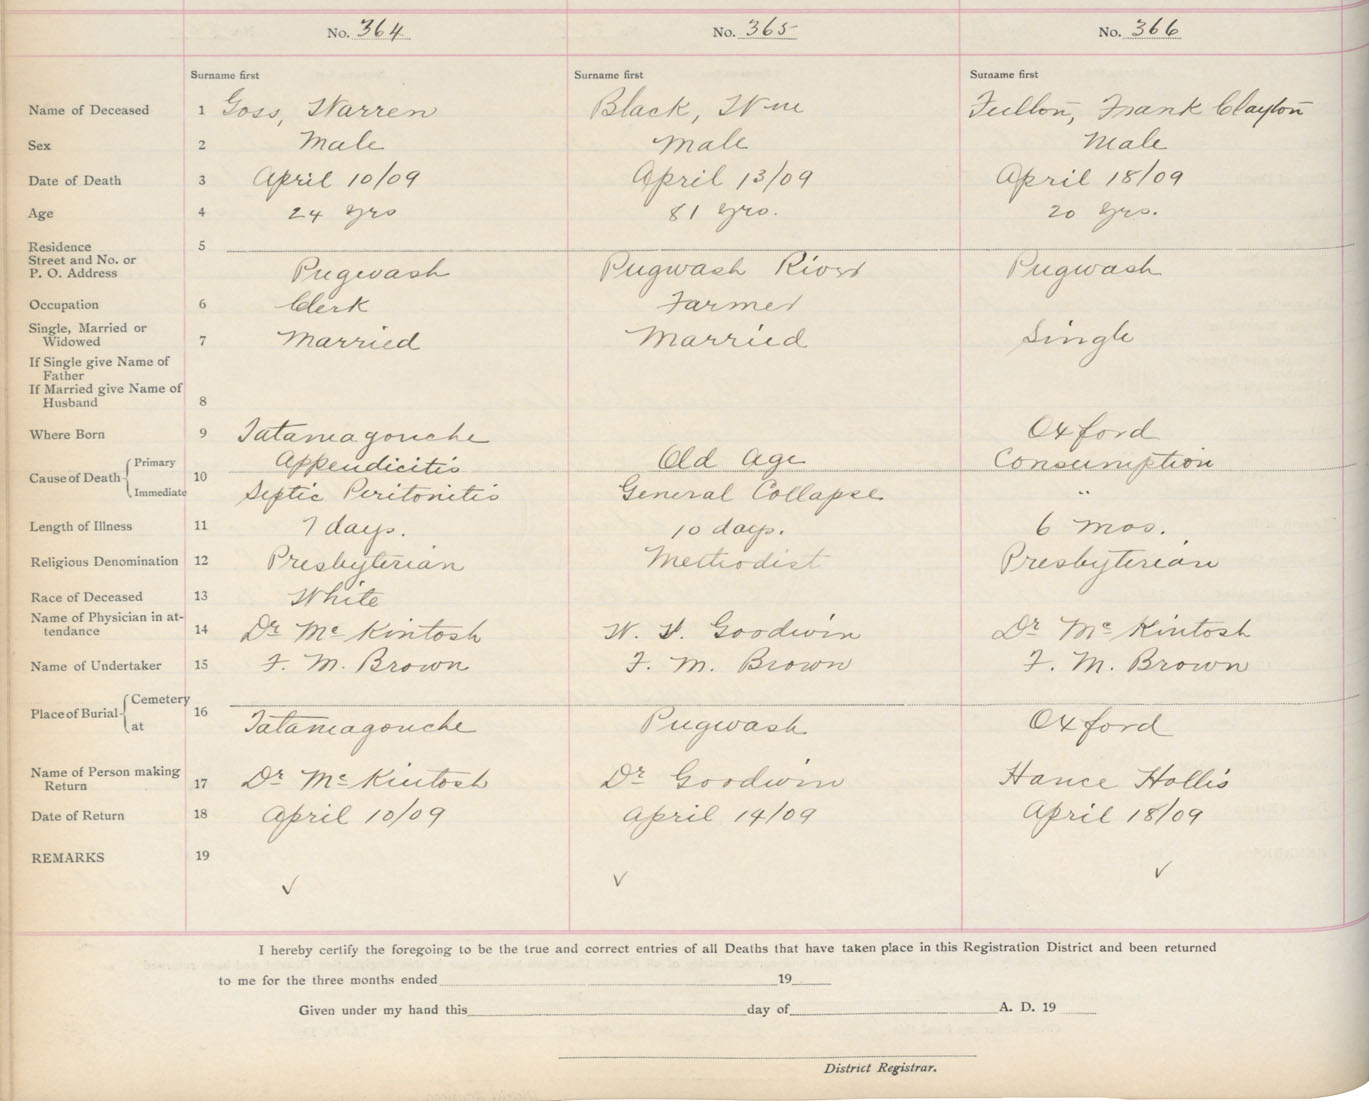 No. 364 No. 365 No. 366
Surname first Surname first Surname first
Name of Deceased 1 Goss, Warren Black, Wm Fullon, Frank Clayton
Sex 2 Male Male Male
Date of Death 3 April 10/09 April 13/09 April 18/09
Age 4 24 yrs 81 yrs. 20 yrs.
Residence 5
Street and No. or
P. O. Address Pugwash Pugwash River Pugwash
Occupation 6 Clerk Farmer
Single, Married or
Widowed 7 Married Married Single
If Single give Name of
Father
If Married give Name of
Husband 8
Where Born 9 Tatamagouche Oxford
Cause of Death 10 Primary Appendicitis Old Age Consumption
Immediate Septic Peritonitis General Collapse "
Length of Illness 11 7 days. 10 days. 6 mos.
Religious Denomination 12 Presbyterian Methodist Presbyterian
Race of Deceased 13 White
Name of Physician in at-
tendance 14 Dr Mc Kintosh W. H. Goodwin Dr Mc Kintosh
Name of Undertaker 15 F. M. Brown F. M. Brown F. M. Brown
Place of Burial 16 Cemetery
at Tatamagouche Pugwash Oxford
Name of Person making
Return 17 Dr Mc Kintosh Dr Goodwin Hance Hollis
Date of Return 18 April 10/09 April 14/09 April 18/09
REMARKS 19
✓ ✓ ✓
I hereby certify the foregoing to be the true and correct entries of all Deaths that have taken place in this Registration District and been returned
to me for the three months ended 19
Given under my hand this day of A. D. 19
District Registrar.